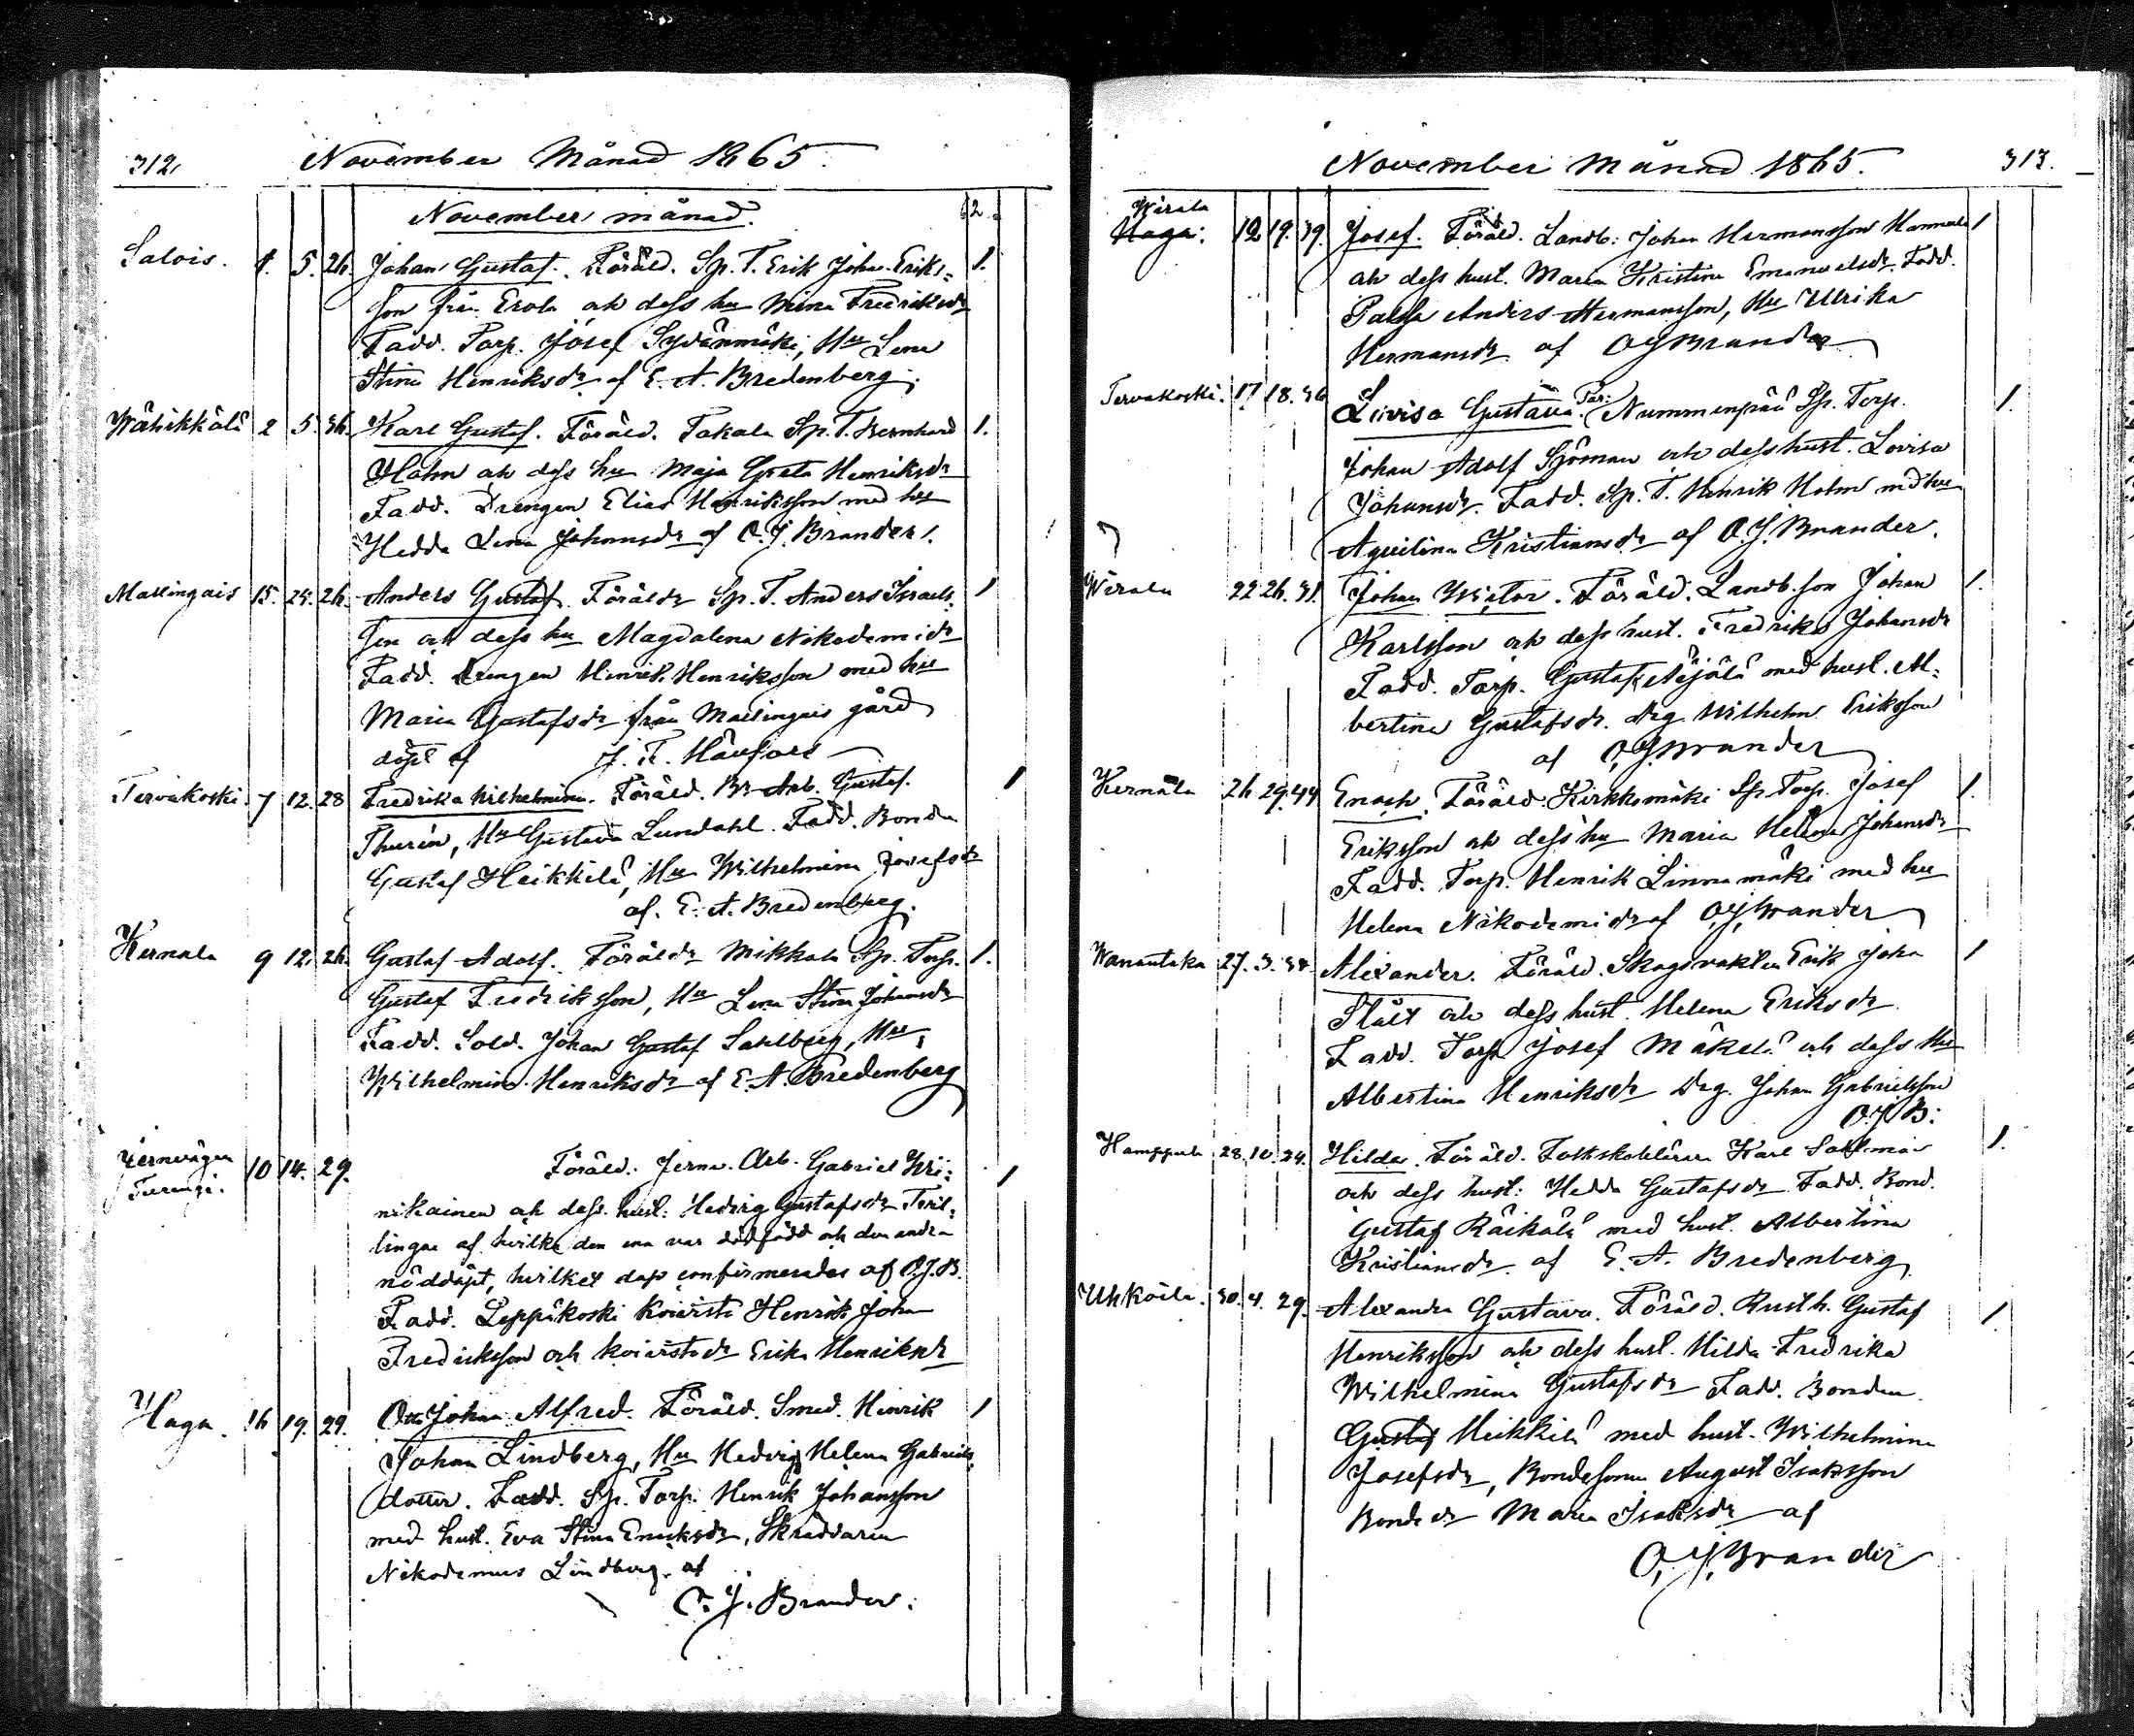 312. November Månad 1865.
November månad. 2.
Salois. 1. 5. 26. Johan Gustaf. Föräld. Sp. T. Erik Johan Eriks- 1.
son från Erola och dess hu Mina Fredriksdr
Fadd. Torp. Josef Sydänmäki, Hu Lena
Stina Henriksdr af E. A. Bredenberg.
Wähikkälä 2 5. 36. Karl Gustaf. Föräld. Takala Sp. T. Bernhard 1.
Holm och dess hu Maja Greta Henriksdr
Fadd. Drengen Elias Henriksson med hu
Hedda Lena Johansdr af O. J. Brander.
Mallingais 15. 24. 26. Anders Gustaf. Föräldr Sp. T. Anders Israels- 1
son och dess hu Magdalena Nikodemidr
Fadd. drengen Henrik Henriksson med hu
Maria Gustafsdr från Mallingais gård
döpt af J. F.
Tervakoski 7 12. 28 Fredrika Wilhelmina. Föräld. Br. Arb. Gustaf 1
Thurén, Hu Gustava Lundahl. Fadd. Bonden
Gustaf Heikkilä, Hu Wilhelmina Josefsdr
af. E. A. Bredenberg.
Kernala 9 12. 26. Gustaf Adolf. Föräldr Mikkola Sp. Torp. 1.
Gustaf Fredriksson, Hu Lena Stina Johansdr
Fadd. Sold. Johan Gustaf Sahlberg, Hu
Wilhelmina Henriksdr af E. A Bredenberg
Jernvägen 10 14. 29. Föräld. Jernv. Arb. Gabriel Wii- 1
Turengi. nikainen och dess hust: Hedvig Gustafsdr Tvil-
lingar af hvilka den ena var dödfödd och den andra
nöddöpt, hvilket dop confirmerades af O. J. B.
Fadd. Leppäkoski Koivisto Henrik Johan
Fredriksson och Koivisto dr Erika Henriksdr
Haga. 16 19. 29. Otto Johan Alfred. Föräld. Smed. Henrik 1
Johan Lindberg, Hu Hedvig Helena Gabriels
dotter. Fadd. Sp. Torp. Henrik Johansson
med hust. Eva Stina Eriksdr, Skräddaren
Nikodemus Lindberg af
O. J. Brander.
November Månad 1865. 313.
Wirala
Haga: 12 19. 39. Josef. Föräld. Landb: Johan Hermansson Hannula 1
och dess hust. Maria Kristina Emanuelsdr. Fadd.
Anders Hermansson, Hu Ulrika
Hermansdr af O J Brander
Tervakoski. 17. 18. 36 Lovisa Gustava. Föräl: Nummenpää Sp. Torp. 1.
Johan Adolf Sjöman och dess hust. Lovisa
Johansdr. Fadd. Sp. T. Henrik Holm med hu
Aqvilina Kristiansdr af O. J. Brander.
Wirala 22 26. 31. Johan Wictor. Föräld. Landb. son Johan 1.
Karlsson och dess hust. Fredrika Johansdr
Fadd. Torp. Gustaf Äijälä med hust. Al-
bertina Gustafsdr. drg Wilhelm Eriksson
af O J Brander
Kernala 26 29. 44 Enoch. Föräld. Kirkkomäki Sp Torp. Josef 1.
Eriksson och dess hu Maria Helena Johansdr
Fadd. Torp. Henrik Linnamäki med hu
Helena Nikodemidr af O J Brander
Wanantaka 27. 3. 34. Alexander. Föräld. Skogsvakten Erik Johan 1
Stålt och dess hust. Helena Eriksdr
Fadd. Torp. Josef Mäkelä och dess Hu
Albertina Henriksdr Drg. Johan Gabrielsson
O. J. B:
Hamppula 28. 10. 24. Hilda. Föräld. Folkskoleläraren Karl 1.
och dess hust: Hedda Gustafsdr Fadd. Bond.
Gustaf Räikälä med hust. Albertina
Kristiansdr af E. A. Bredenberg
Uhkoila. 30. 4. 29. Alexandra Gustava. Föräld. Rusth. Gustaf 1
Henriksson och dess hust. Hilda Fredrika
Wilhelmina Gustafsdr Fadd. Bonden
Gustaf Heikkilä med hust. Wilhelmina
Josefsdr, Bondesonen August Isaksson
Bonde dr Maria Isaksdr af
O. J. Brander